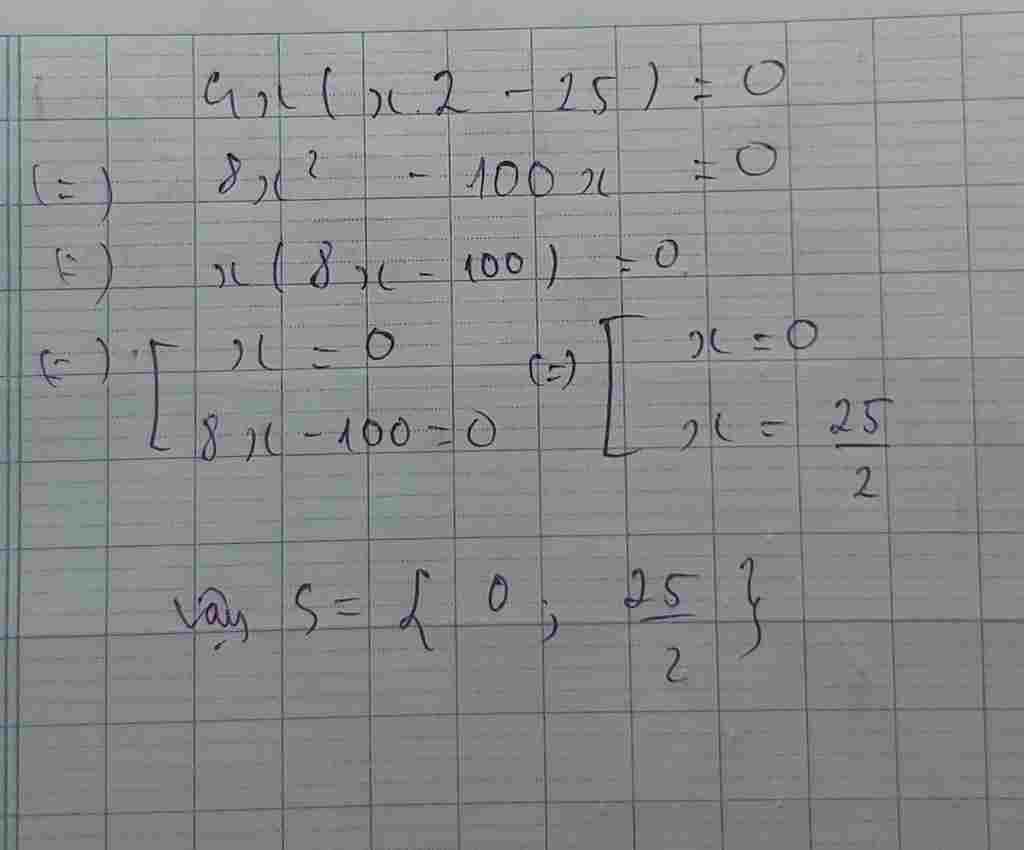 4x(x.2 - 25) = 0
(=) 8x² - 100x = 0
(=) x(8x - 100) = 0
(=) [ x = 0 (=) [ x = 0
8x - 100 = 0 x = 25/2
Vậy S = { 0 ; 25/2 }